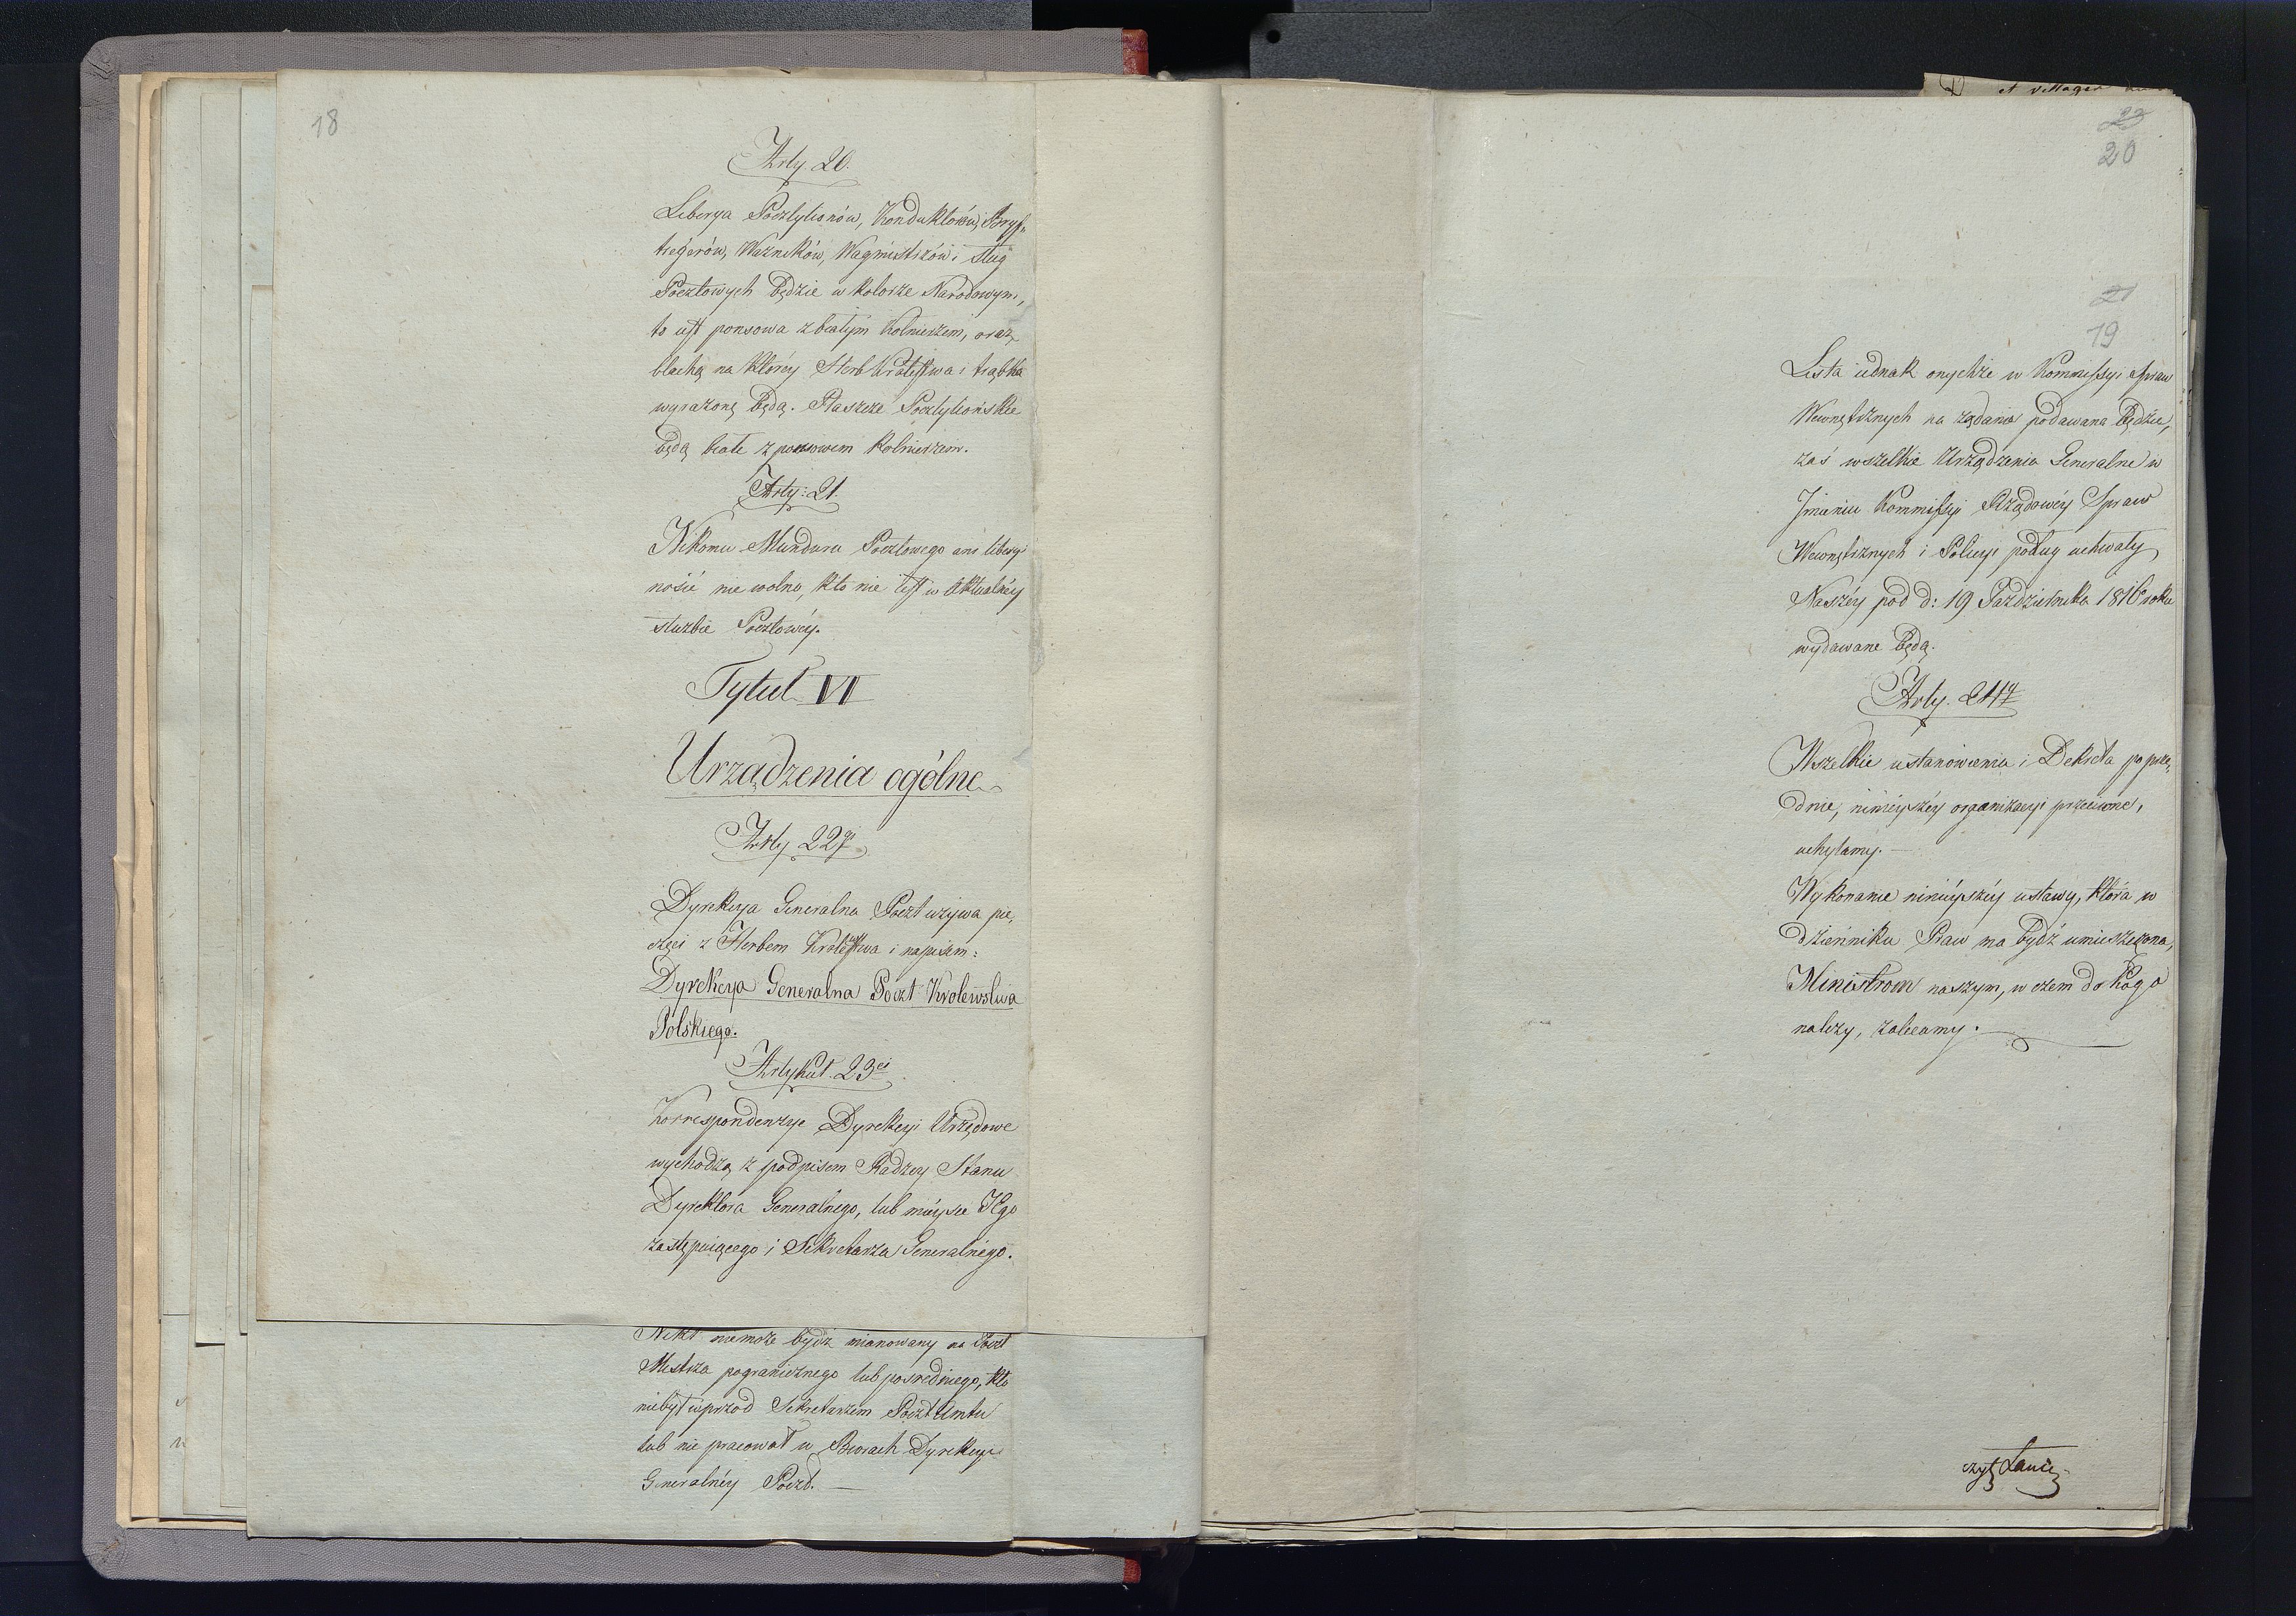 18
Arty. 20.
Liberya Pocztylionów, Konduktorów, Bryf-
tregerów, Waźników, Wagmistrzów i sług
Pocztowych będzie w kolorze Narodowym,
to iest ponsowa z białym kolnierzem, oraz
blachą na któréy Herb Królestwa i trąbka
wyrażone będą. Płaszcze Pocztylionskie
będą białe z ponsowem kolnierzem.
Arty: 21.
Nikomu Munduru Pocztowego ani liberyi
nosić nie wolno, kto nie iest w aktualnéy
służbie Pocztowéy.
Tytuł VI
Urządzenia ogólne
Arty 22gi
Dyrekcya Generalna Poczt używa pie,
częci z Herbem Królestwa i napisem:
Dyrekcya Generalna Poczt Królewstwa
Polskiego.
Artykuł. 23ci
Korrespondencye Dyrekcyi Urzędowe
wychodzą z podpisem Radzcy Stanu
Dyrektora Generalnego, lub miéysce Jego
zastępuiącego i Sekretarza Generalnego.
Nikt niemoże bydź mianowany na Poczt
Mistrza pogranicznego lub posredniego, kto
niebył wprzod Sekretarzem Poczt Amtu
lub nie pracował w Biorach Dyrekcyi
Generalnéy Poczt. —
et villages
23
20
21
19
Lista iednak onychże w Kommissyi Spraw
Wewnętrznych na żądanie podawana będzie,
zaś wszelkie Urządzenia Generalne w
Jmieniu Kommissyi Rządowéy Spraw
Wewnętrznych i Policyi podług uchwały
Naszéy pod d: 19 Października 1816 roku
wydawane będą.
Arty. 24ty
Wszelkie ustanowienia i Dekreta poprze,
dnie, ninieyszéy organizacyi przeciwne,
uchylamy. —
Wykonanie ninieyszéy ustawy, która w
dzienniku Praw ma bydź umieszczona,
Ministrom naszym, w czem do kogo
należy, zalecamy.